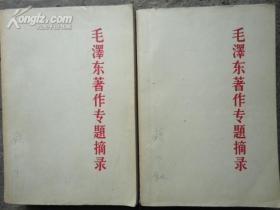 毛澤东著作专題摘录
毛澤东著作专題摘录
KONGFZ.COM